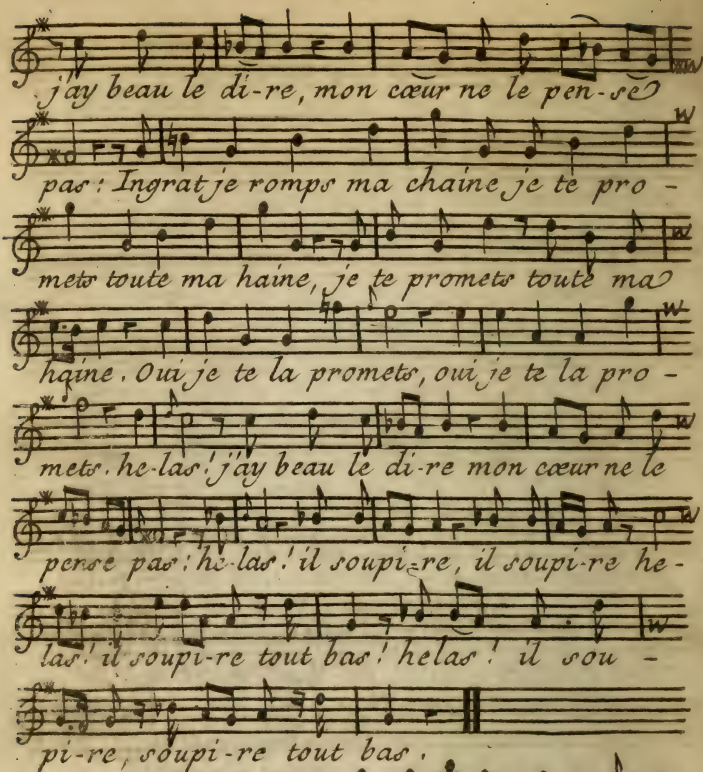 j'ay beau le di-re, mon cœur ne le pen-se
pas: Ingrat je romps ma chaine, je te pro -
mets toute ma haine, je te promets toute ma
haine. Oui je te la promets, oui je te la pro -
mets. he-las! j'ay beau le di-re mon cœur ne le
pense pas! he-las! il soupi-re, il soupi-re he-
las! il soupi-re tout bas! helas! il sou -
pi-re, soupi-re tout bas.